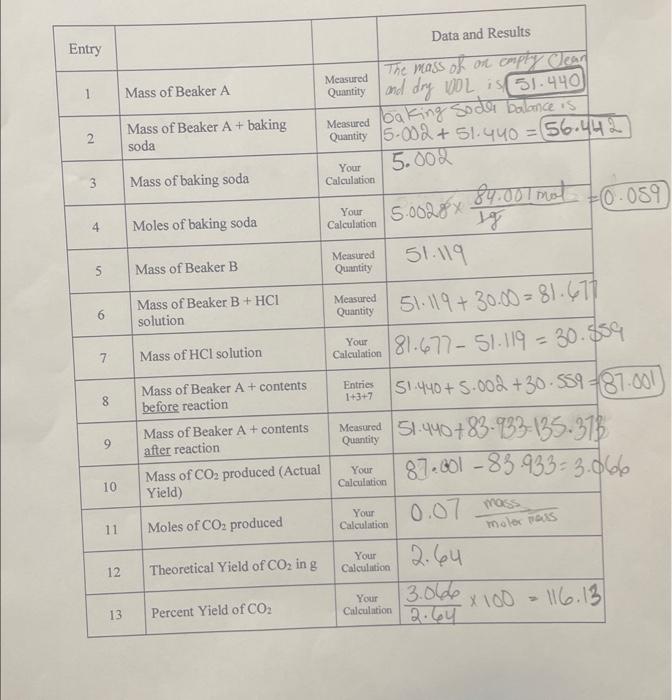 Data and Results
Entry
1 Mass of Beaker A Measured Quantity The mass of an empty clean and dry 100L is 51.440
2 Mass of Beaker A + baking soda Measured Quantity baking soda balance is 5.002 + 51.440 = 56.442
3 Mass of baking soda Your Calculation 5.002
4 Moles of baking soda Your Calculation 5.002g x 84.001 mol / 1g = 0.059
5 Mass of Beaker B Measured Quantity 51.119
6 Mass of Beaker B + HCl solution Measured Quantity 51.119 + 30.00 = 81.677
7 Mass of HCl solution Your Calculation 81.677 - 51.119 = 30.559
8 Mass of Beaker A + contents before reaction Entries 1+3+7 51.440 + 5.002 + 30.559 = 87.001
9 Mass of Beaker A + contents after reaction Measured Quantity 51.440 + 83.933 = 135.373
10 Mass of CO₂ produced (Actual Yield) Your Calculation 87.001 - 83.933 = 3.066
11 Moles of CO₂ produced Your Calculation 0.07 mass / molar mass
12 Theoretical Yield of CO₂ in g Your Calculation 2.64
13 Percent Yield of CO₂ Your Calculation 3.066 / 2.64 x 100 = 116.13